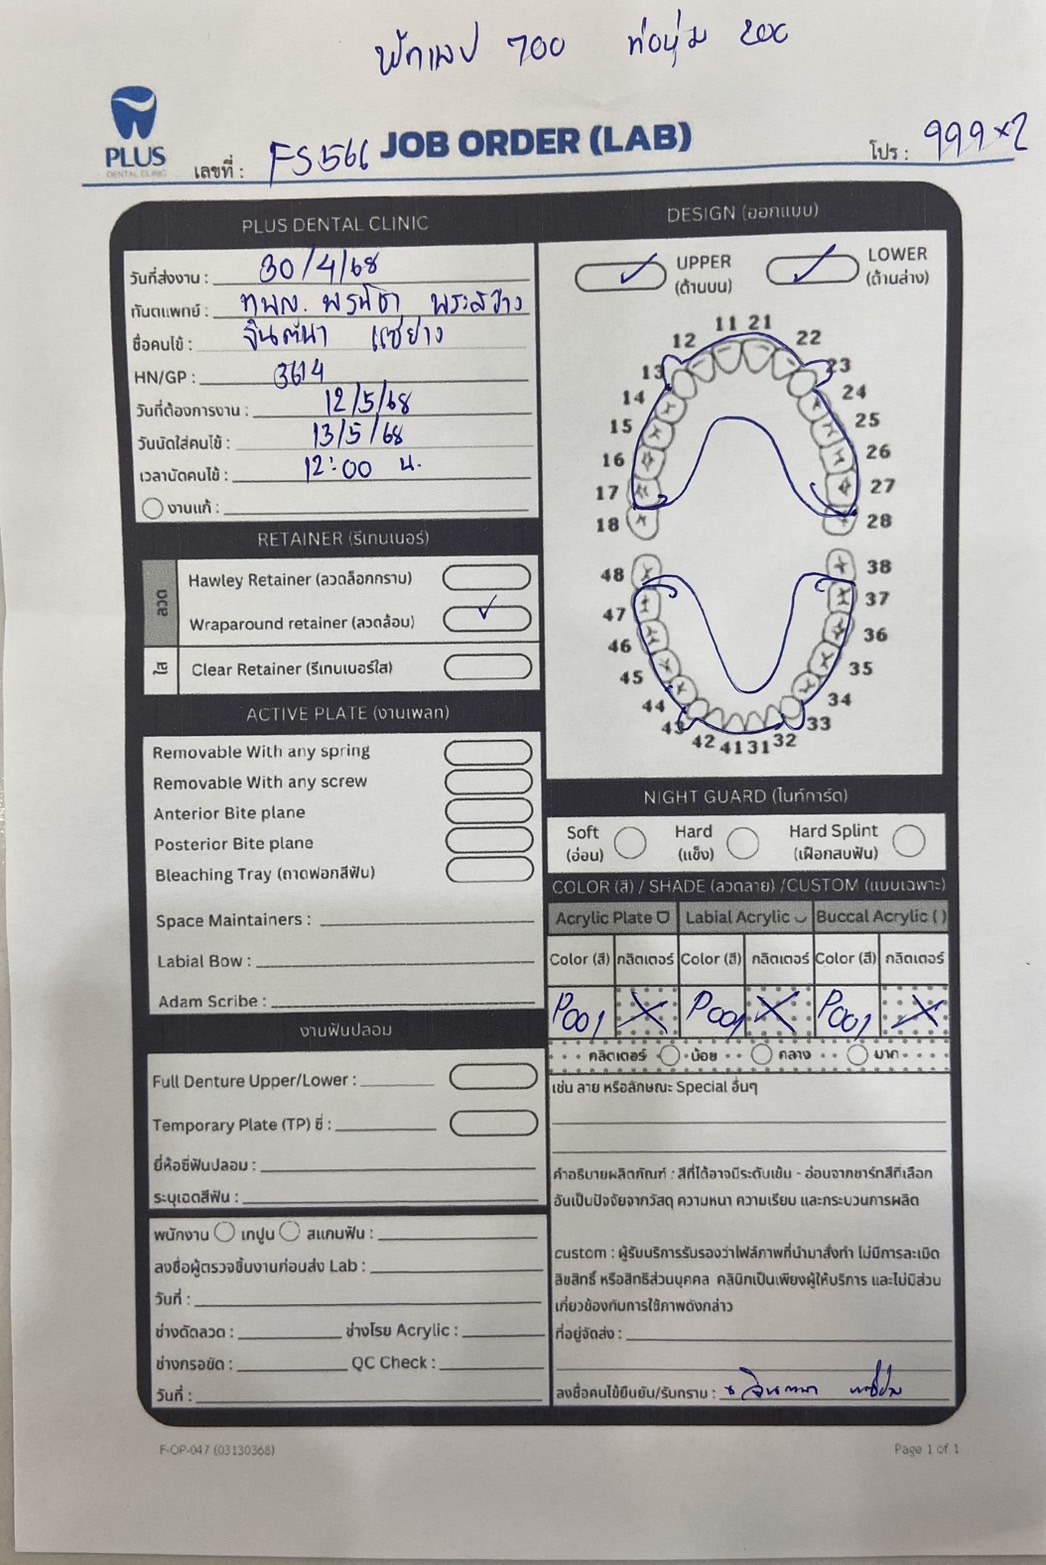 700 200
PLUS
DENTAL CLINIC
เลขที่ : FS566
JOB ORDER (LAB)
โปร : 999x2
PLUS DENTAL CLINIC
วันที่ส่งงาน : 30/4/68
ทันตแพทย์ : ทพญ.
ชื่อคนไข้ : จินตนา แซ่ย่าง
HN/GP : 3614
วันที่ต้องการงาน : 12/5/68
วันนัดใส่คนไข้ : 13/5/68
เวลานัดคนไข้ : 12:00 น.
งานแก้ :
RETAINER (รีเทนเนอร์)
ลวด
Hawley Retainer (ลวดล็อกกราม)
Wraparound retainer (ลวดล้อม)
ใส
Clear Retainer (รีเทนเนอร์ใส)
ACTIVE PLATE (งานเพลท)
Removable With any spring
Removable With any screw
Anterior Bite plane
Posterior Bite plane
Bleaching Tray (ถาดฟอกสีฟัน)
Space Maintainers :
Labial Bow :
Adam Scribe :
งานฟันปลอม
Full Denture Upper/Lower :
Temporary Plate (TP) ซี่ :
ยี่ห้อซี่ฟันปลอม :
ระบุเฉดสีฟัน :
พนักงาน เทปูน สแกนฟัน :
ลงชื่อผู้ตรวจชิ้นงานก่อนส่ง Lab :
วันที่ :
ช่างดัดลวด : ช่างโรย Acrylic :
ช่างกรอขัด : QC Check :
วันที่ :
DESIGN (ออกแบบ)
UPPER
(ด้านบน)
LOWER
(ด้านล่าง)
11 21
12 22
13 23
14 24
15 25
16 26
17 27
18 28
48 38
47 37
46 36
45 35
44 34
43 33
42 41 31 32
NIGHT GUARD (ไนท์การ์ด)
Soft
(อ่อน)
Hard
(แข็ง)
Hard Splint
(เฝือกสบฟัน)
COLOR (สี) / SHADE (ลวดลาย) /CUSTOM (แบบเฉพาะ)
Acrylic Plate Labial Acrylic Buccal Acrylic ( )
Color (สี) กลิตเตอร์ Color (สี) กลิตเตอร์ Color (สี) กลิตเตอร์
P001 X P001 X P001 X
กลิตเตอร์ น้อย กลาง มาก
เช่น ลาย หรือลักษณะ Special อื่นๆ
คำอธิบายผลิตภัณฑ์ : สีที่ได้อาจมีระดับเข้ม - อ่อนจากชาร์ทสีที่เลือก
อันเป็นปัจจัยจากวัสดุ ความหนา ความเรียบ และกระบวนการผลิต
custom : ผู้รับบริการรับรองว่าไฟล์ภาพที่นำมาสั่งทำ ไม่มีการละเมิด
ลิขสิทธิ์ หรือสิทธิส่วนบุคคล คลินิกเป็นเพียงผู้ให้บริการ และไม่มีส่วน
เกี่ยวข้องกับการใช้ภาพดังกล่าว
ที่อยู่จัดส่ง :
ลงชื่อคนไข้ยืนยัน/รับทราบ :
F-OP-047 (03130368)
Page 1 of 1